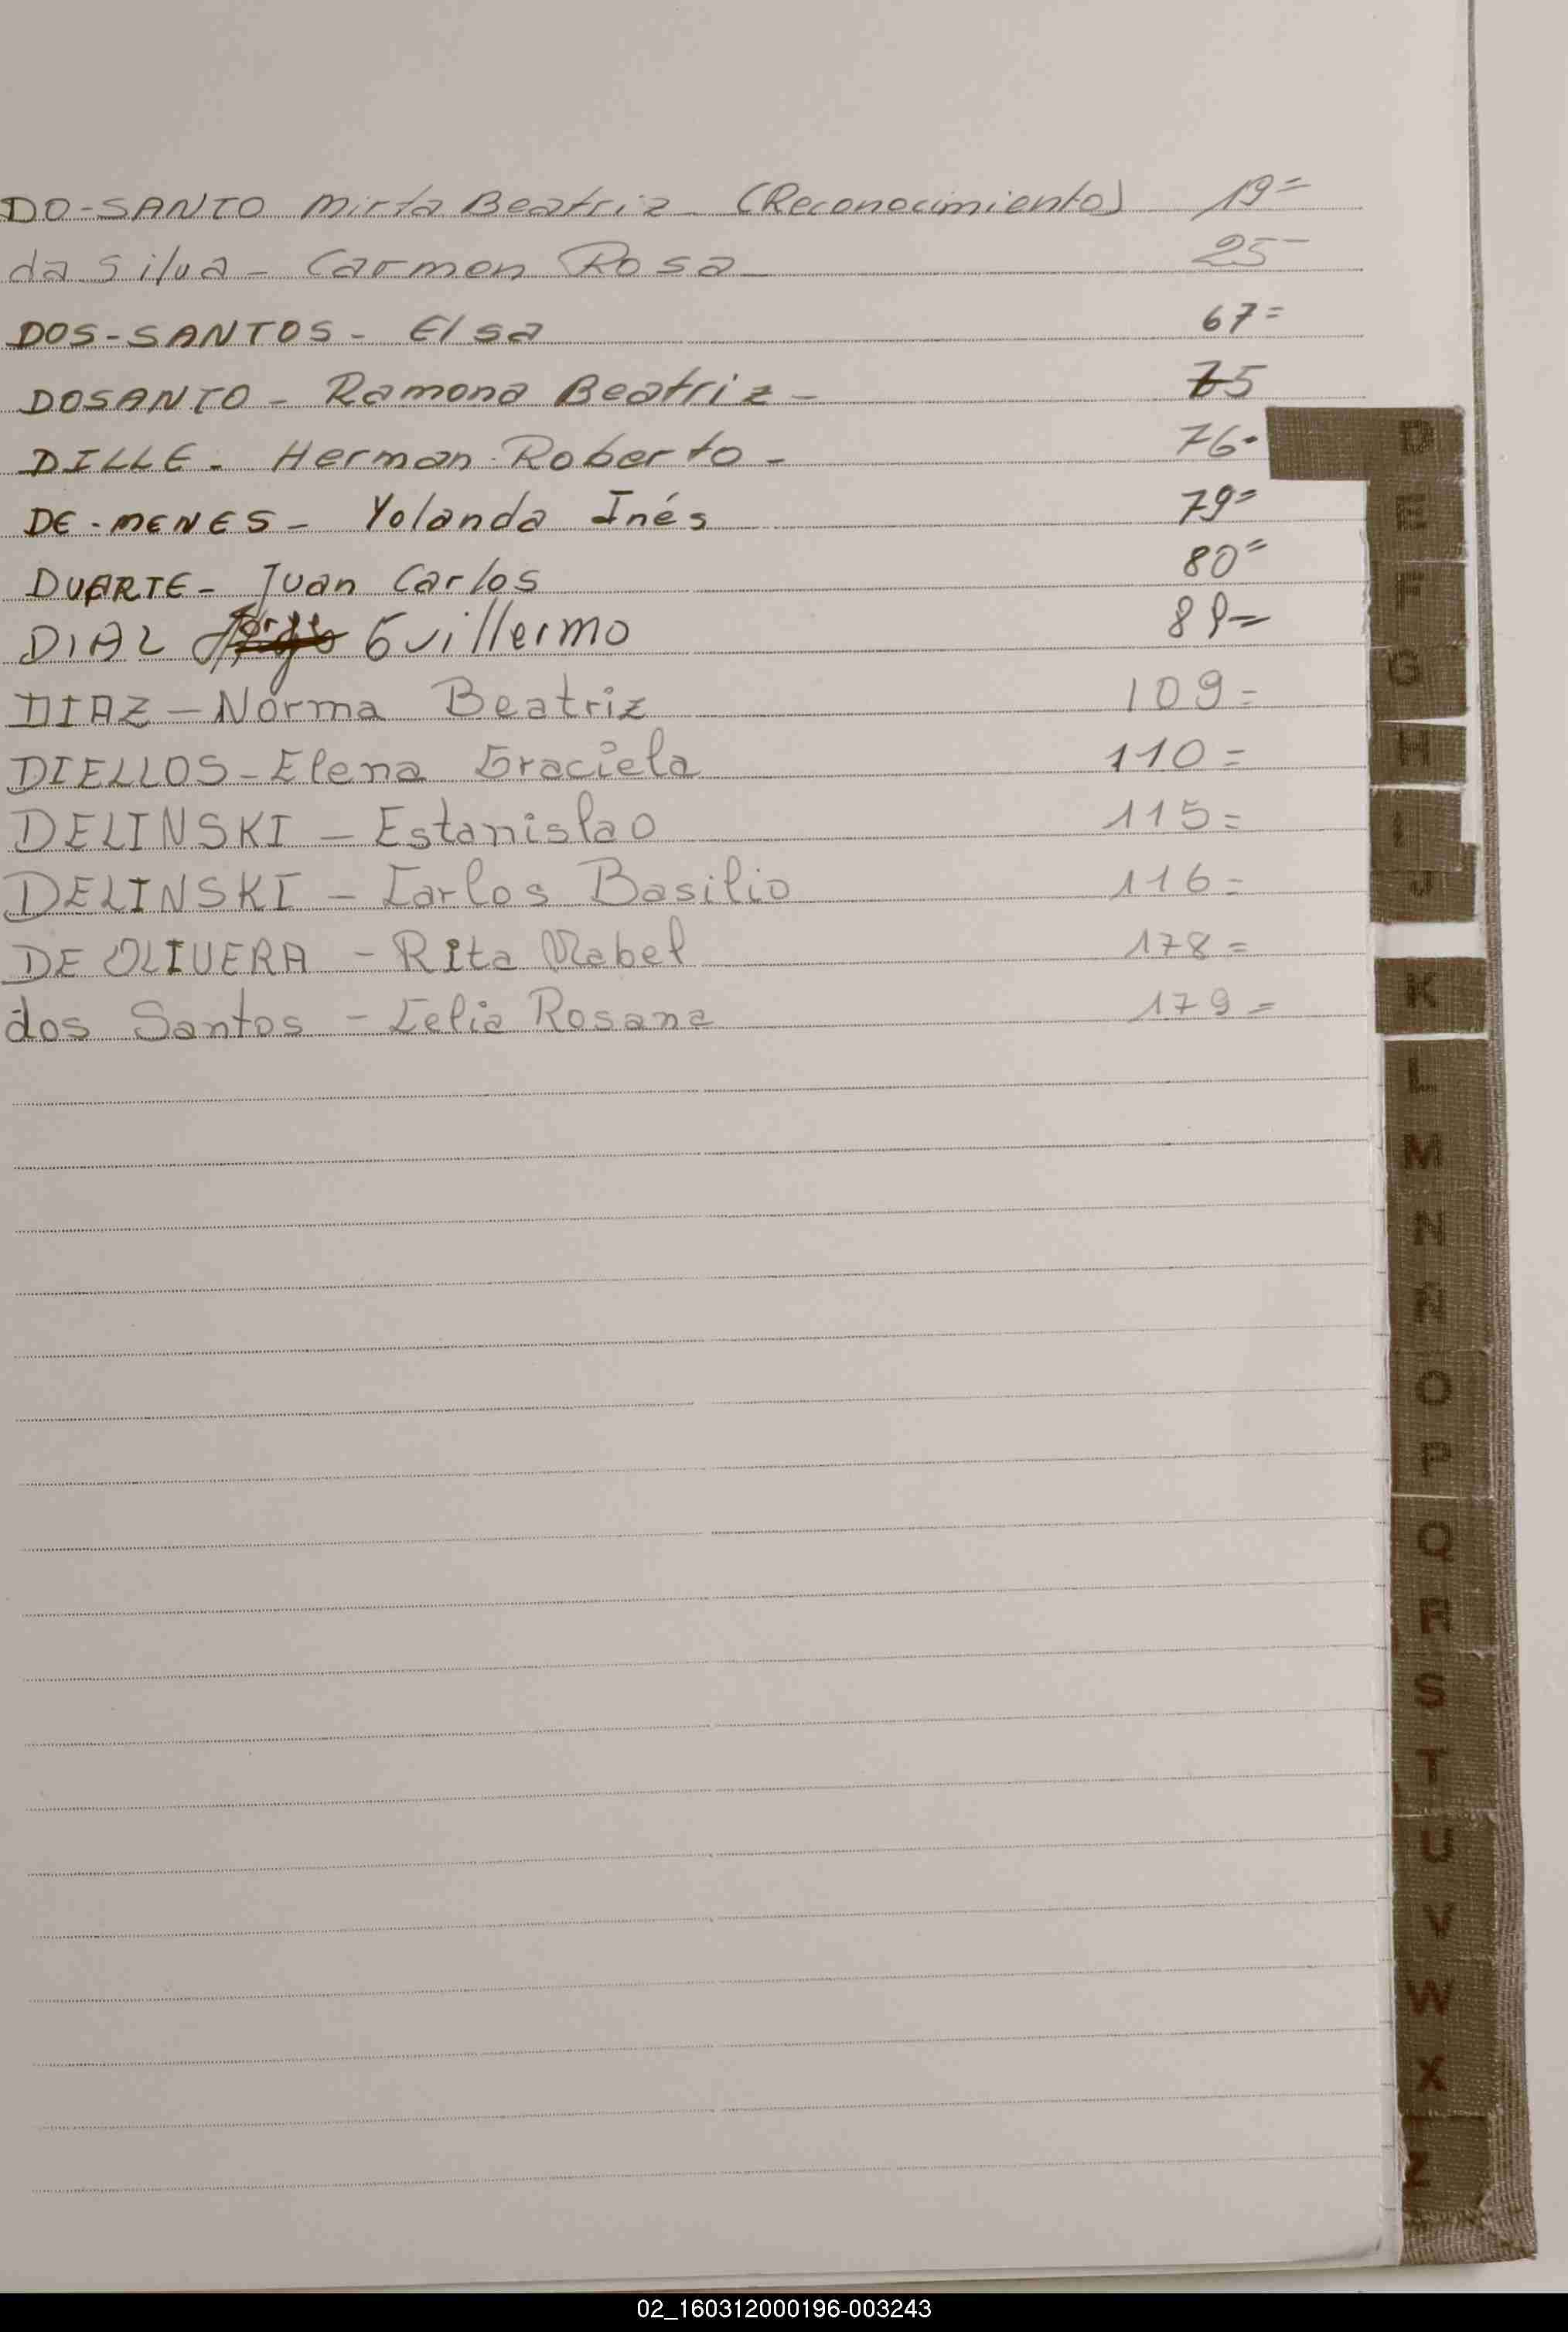 DO-SANTO Mirta Beatriz (Reconocimiento) 19=
da Silva - Carmen Rosa 25-
DOS-SANTOS - Elsa 67=
DOSANTO - Ramona Beatriz - 75
DILLE - Herman Roberto - 76-
DE-MENES - Yolanda Inés 79=
DUARTE - Juan Carlos 80=
DIAL Guillermo 89=
DIAZ - Norma Beatriz 109=
DIELLOS - Elena Graciela 110=
DELINSKI - Estanislao 115=
DELINSKI - Carlos Basilio 116=
DE OLIVERA - Rita Mabel 178=
dos Santos - Celia Rosana 179=
D
E
F
G
H
I
J
K
L
M
N
Ñ
O
P
Q
R
S
T
U
V
W
X
Z
02_160312000196-003243